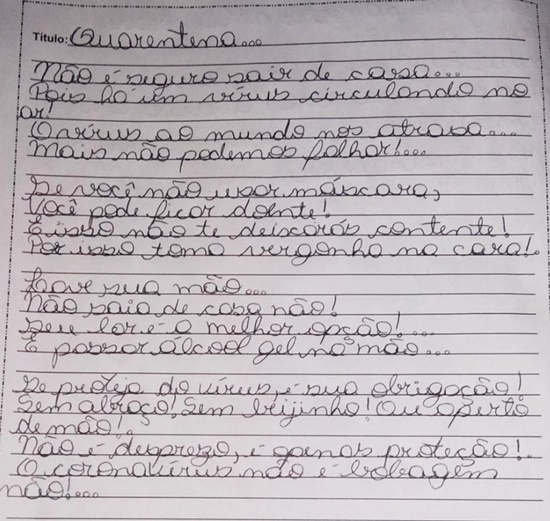 Título: Quarentena...
Não é seguro sair de casa...
Pois há um vírus circulando no
ar!
O vírus ao mundo nos atrasa...
Mais não podemos falhar!...
Se você não usar máscara,
Você pode ficar doente!
E isso não te deixarás contente!
Por isso toma vergonha na cara!.
Lave sua mão...
Não saia de casa não!
Seu lar é a melhor opção!...
E passar álcool gel na mão...
Se proteja do vírus, é sua obrigação!
Sem abraço, Sem beijinho! Ou aperto
de mão!.
Não é desprezo, é apenas proteção!.
O coronavírus não é bobagem
não!...